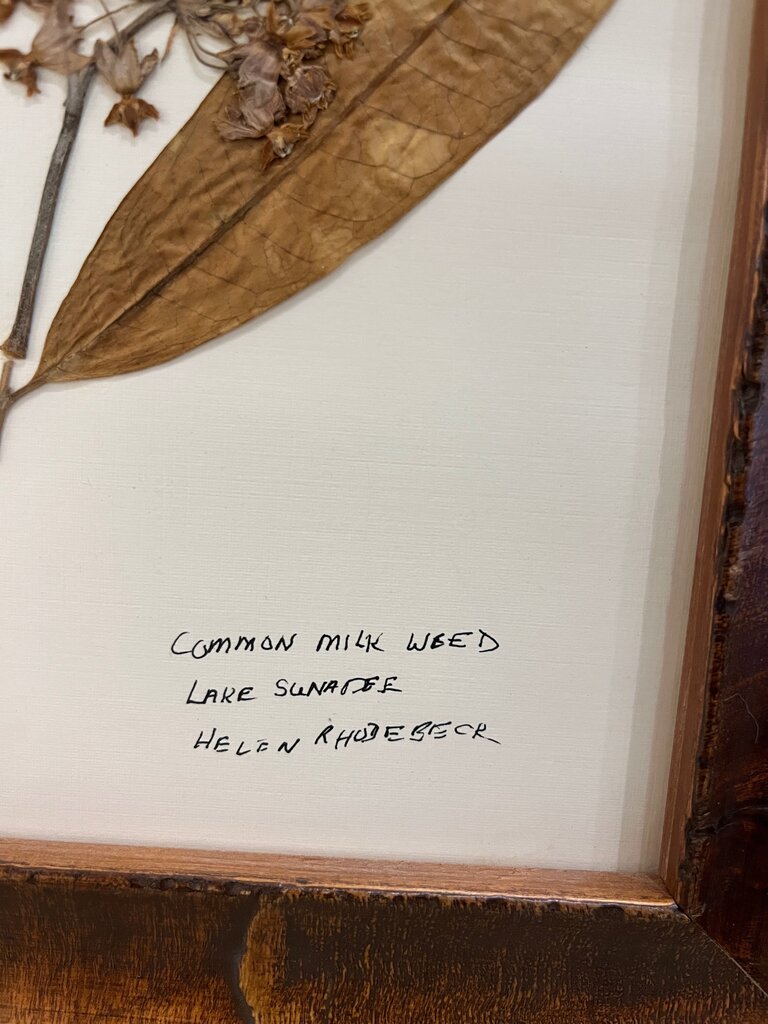 COMMON MILK WEED
LAKE SUNAPEE
HELEN RHODEBECK